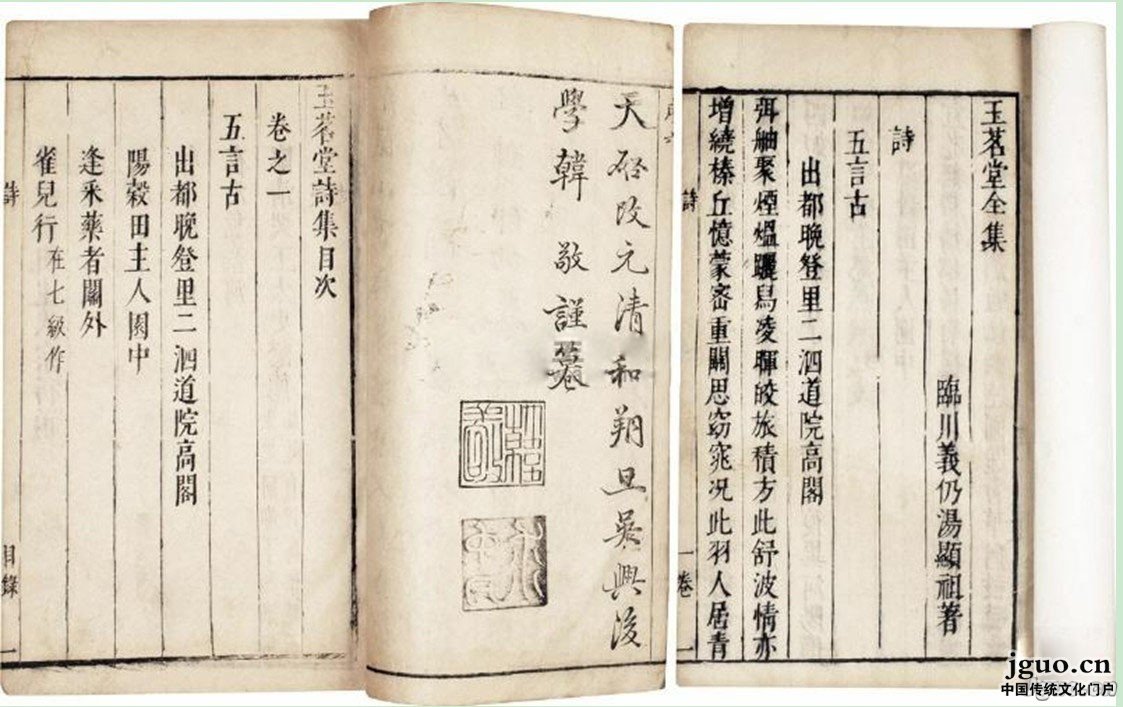 玉茗堂全集
臨川義仍湯顯祖著
詩
五言古
出都晚登里二泗道院高閣
弭舳聚煙熅曬舄凌暉皎旅積方此舒波情亦
增繞榛丘憶蒙密重關思窈窕况此羽人居青
詩
一卷
一
天啓改元清和朔旦吳興後
學韓敬謹
玉茗堂詩集目次
卷之一
五言古
出都晚登里二泗道院高閣
陽穀田主人園中
逢采藥者關外
雀兒行在七級作
詩
目錄
一
jguo.cn
中国传统文化门户